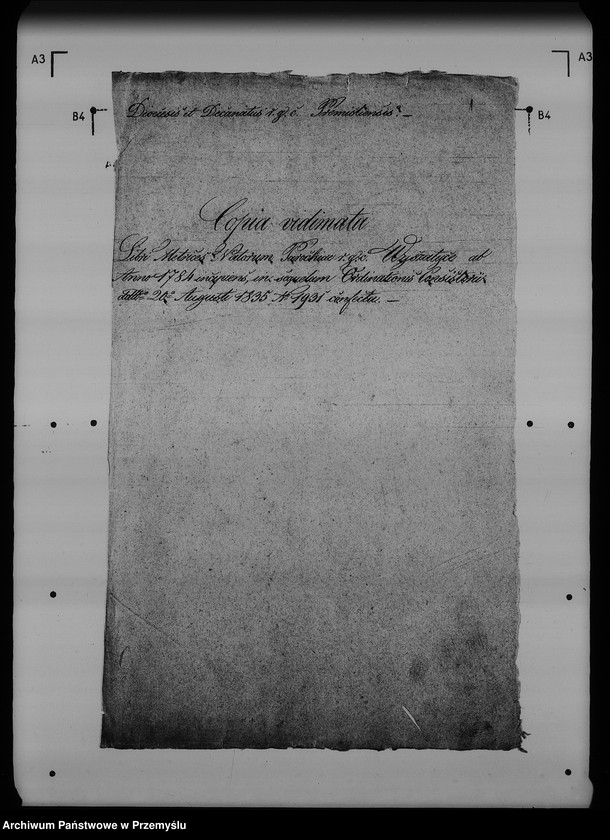 A3
A3
B4
B4
Diocesis et Decanatus r. g. c. Premisliensis. —
Copia vidimata
Libri Metrices Natorum Parochiae r. g. c. Wyszatyce ab
Anno 1784 incipiens, in sequelam Ordinationis
ddto 20 Augusti 1835 N. 1931 confecta. —
Archiwum Państwowe w Przemyślu